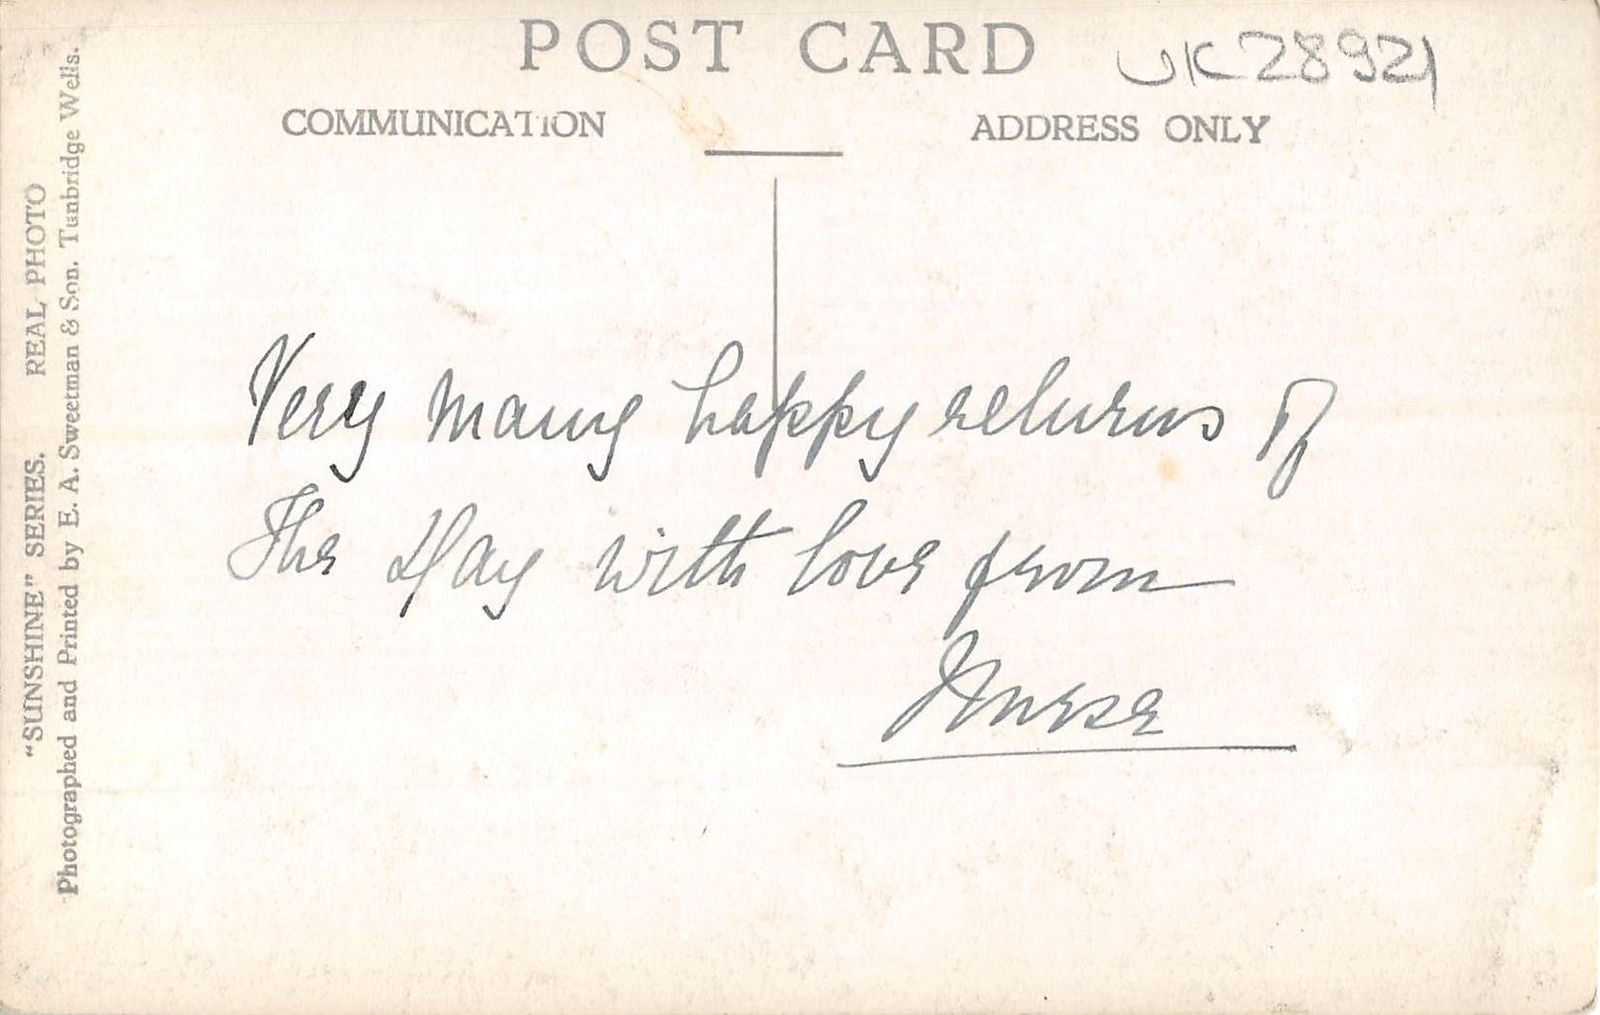 POST CARD
UK28921
COMMUNICATION
ADDRESS ONLY
Very many happy returns of
The Day with love from
Nurse
"SUNSHINE" SERIES. REAL PHOTO
Photographed and Printed by E. A. Sweetman & Son. Tunbridge Wells.